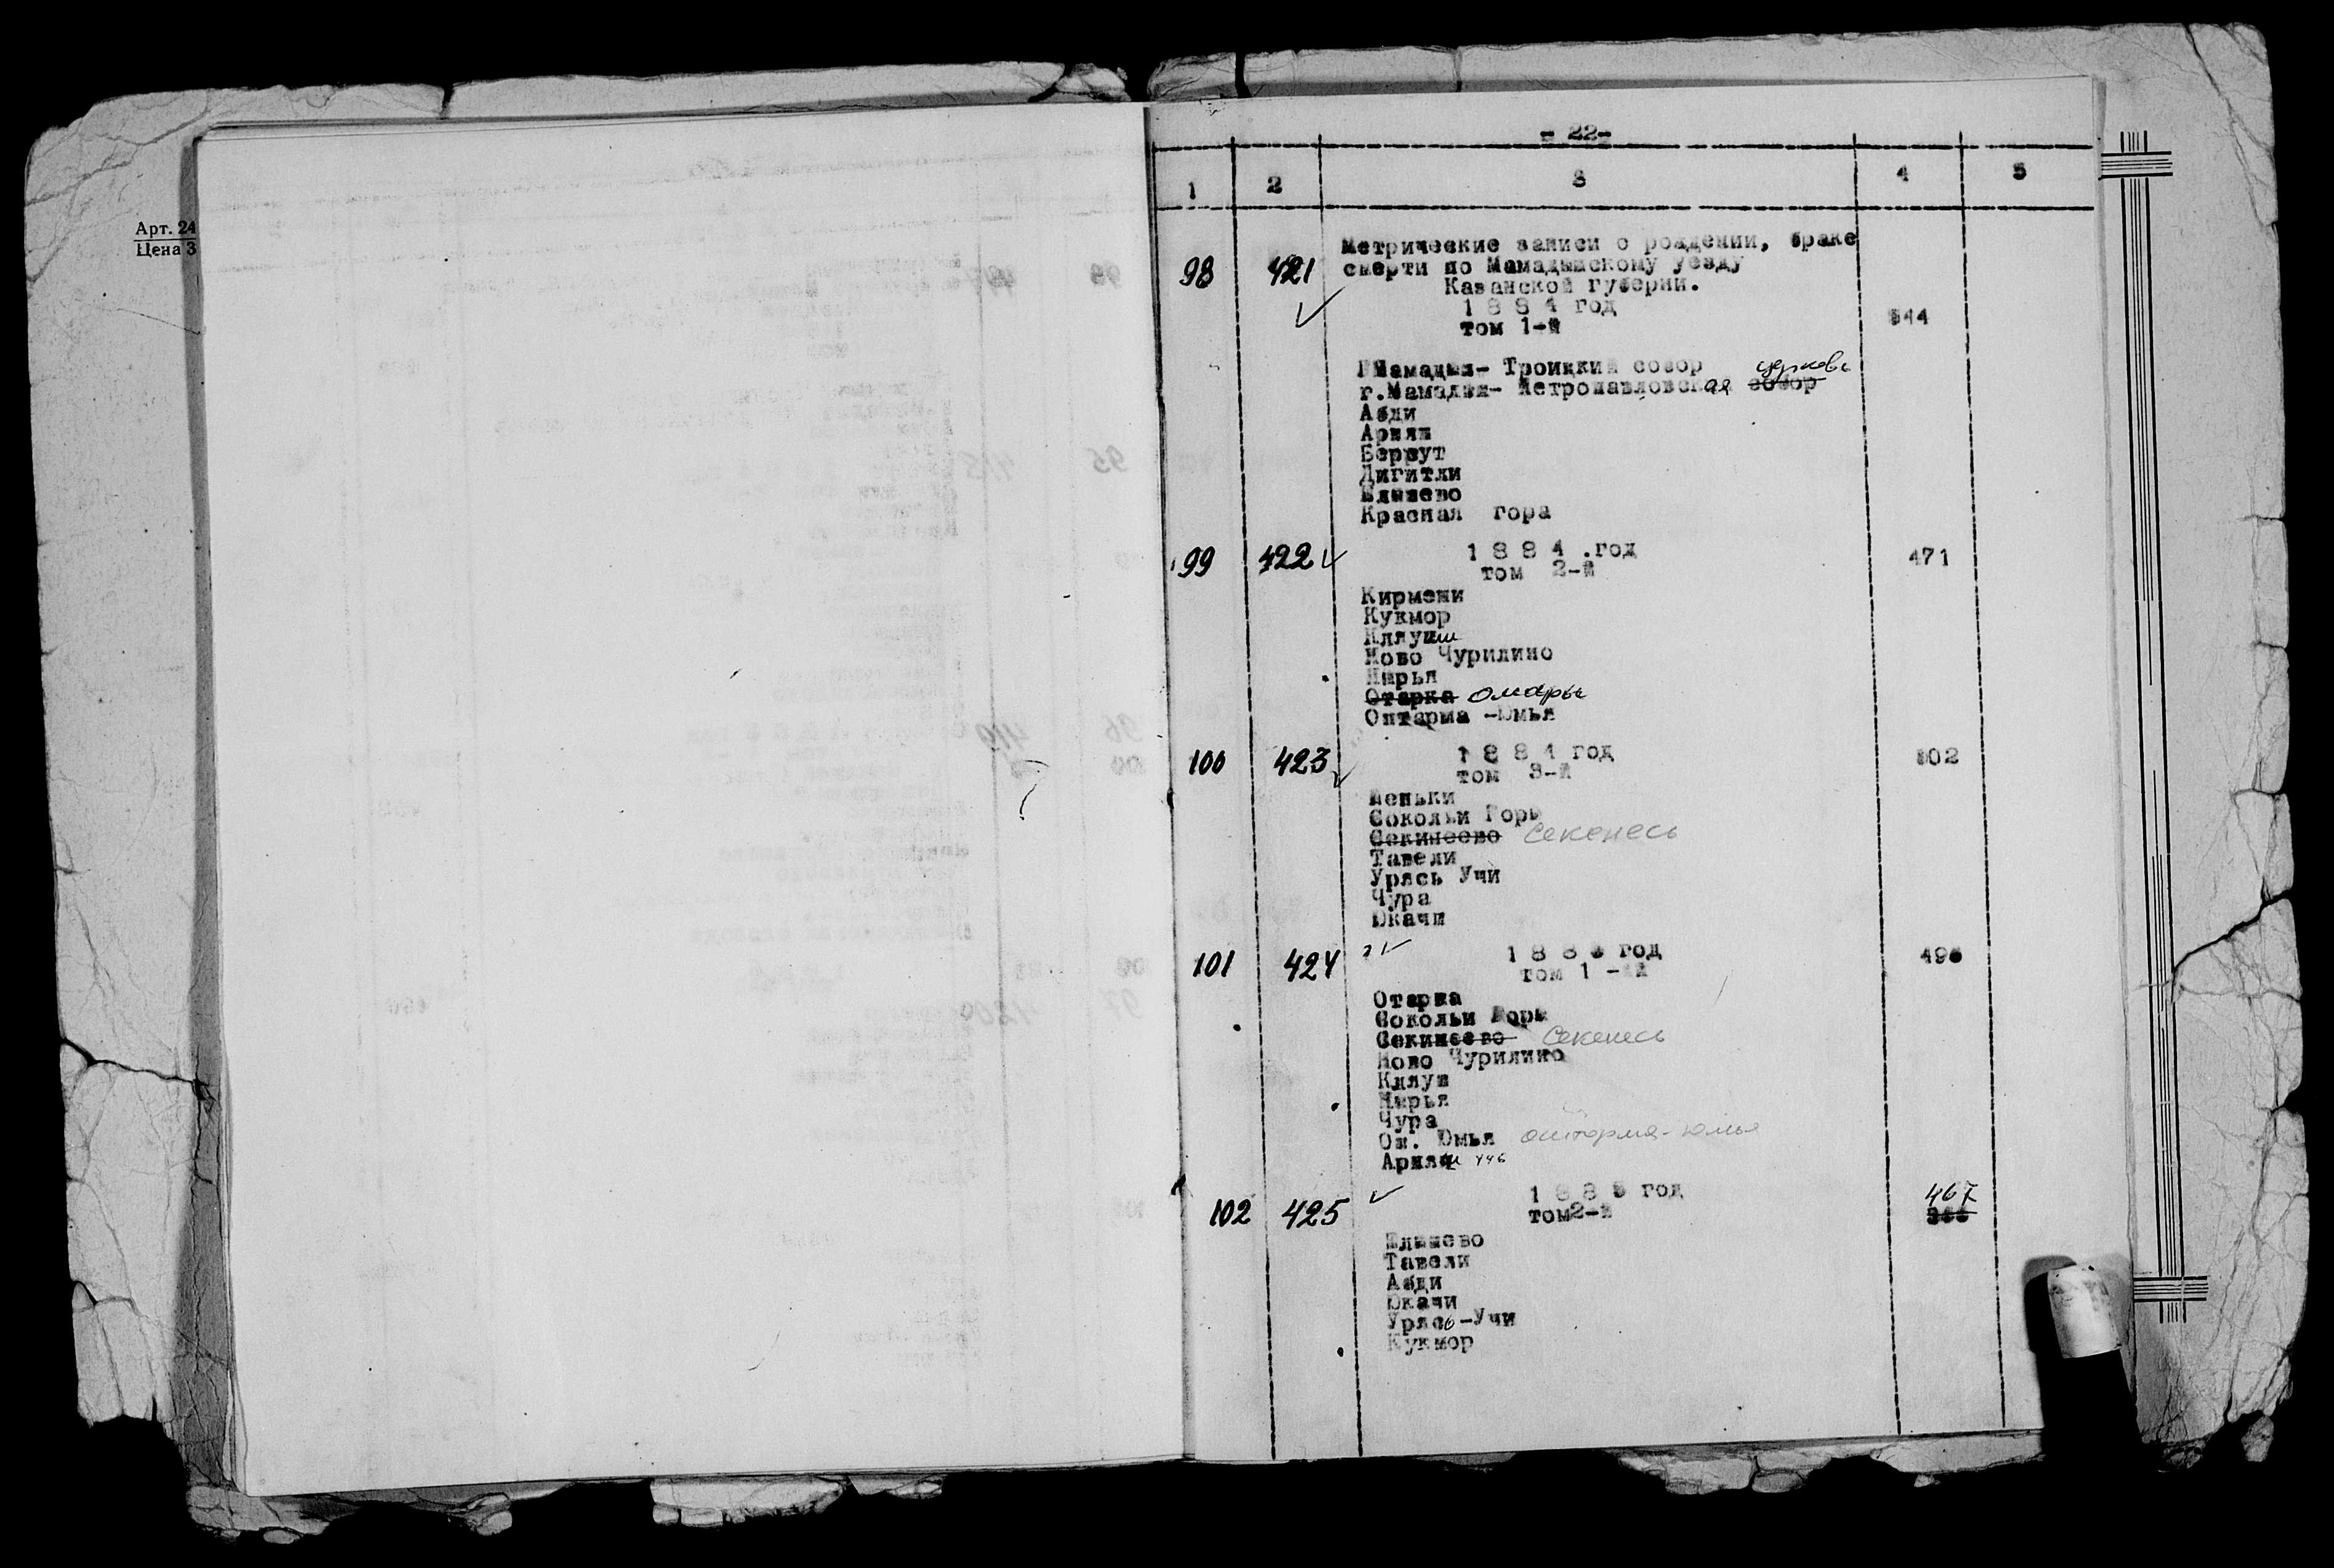 Арт. 24
Цена 3
- 22-
1 2 3 4 5
Метрические записи о рождении, браке
98 421 смерти по Мамадышскому уезду
Казанской губерии.
1 8 8 4 год
том 1-й 544
Мамадыш- Троицкий собор
церковь
г.Мамадыш- Петропавловская собор
Абди
Арняш
Берсут
Дигитли
Елышево
Красная гора
99 422 1 8 8 4 .год 471
том 2-й
Кирмени
Кукмор
Кляуш
Ново Чурилино
Нырья
Отарка Омары
Оштарма -Юмья
100 423 1 8 8 4 год
том 3-й
Пеньки
Сокольи Горы
Секинеево Секенесь
Тавели
Урясь Учи
Чура
Юкачи
101 424 год
том 1 -й
Отарка
Сокольи Горы
Секинеево Секенесь
Ново Чурилино
Кляуш
Нырья
Чура
Ош. Юмья ошторма-юмья
Арняш
102 425 год 467
том2-й
Елышево
Тавели
Абди
Юкачи
Урясь-Учи
Кукмор